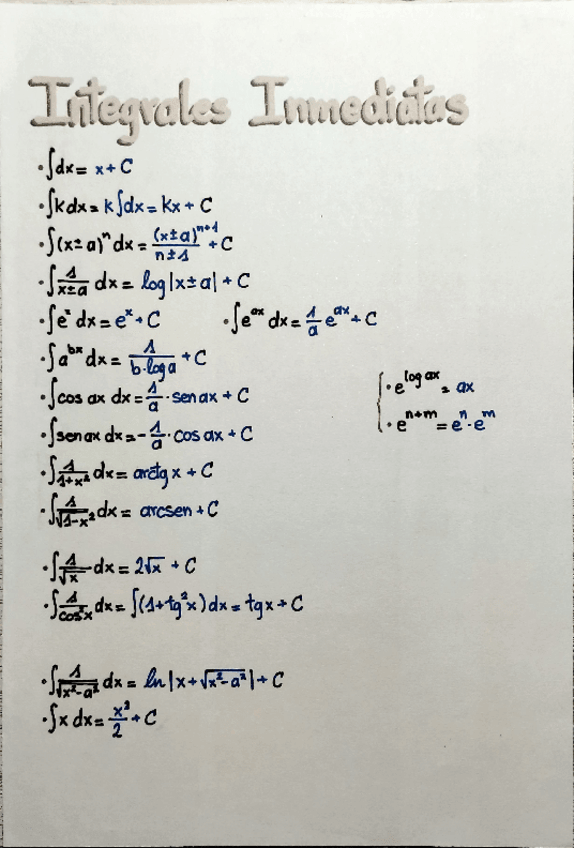 Integrales Inmediatas
· ∫dx = x + C
· ∫k dx = k∫dx = kx + C
· ∫(x ± a)ⁿ dx = (x ± a)ⁿ⁺¹/(n ± 1) + C
· ∫1/(x ± a) dx = log|x ± a| + C
· ∫eˣ dx = eˣ + C · ∫e^(ax) dx = 1/a e^(ax) + C
· ∫a^(bx) dx = 1/(b·log a) + C
· e^(log ax) = ax
· ∫cos ax dx = 1/a · sen ax + C
· e^(n+m) = eⁿ · e^m
· ∫sen ax dx = -1/a · cos ax + C
· ∫1/(1+x²) dx = arctg x + C
· ∫1/√(1-x²) dx = arcsen + C
· ∫1/√x dx = 2√x + C
· ∫1/cos²x dx = ∫(1+tg²x) dx = tg x + C
· ∫1/√(x²-a²) dx = ln|x + √(x²-a²)| + C
· ∫x dx = x²/2 + C